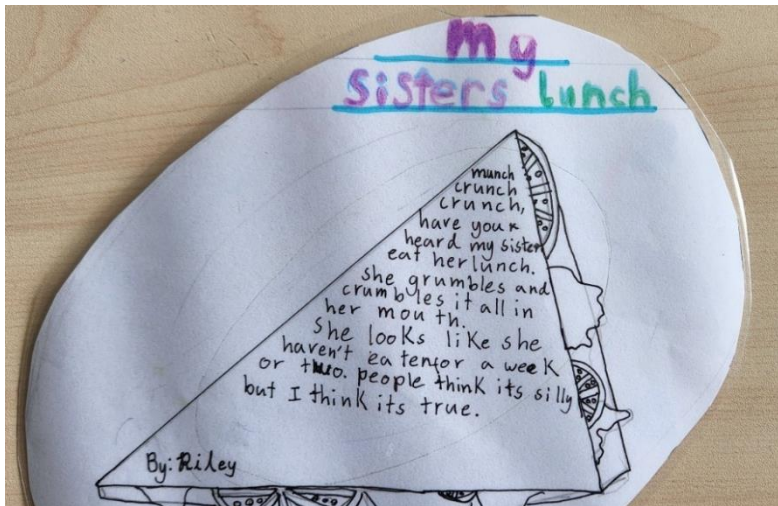 My
Sisters lunch
munch
crunch
crunch,
have your
heard my sister
eat her lunch.
she grumbles and
crumbles it all in
her mouth.
She looks like she
haven't eatenfor a week
or two. people think its silly
but I think its true.
By: Riley